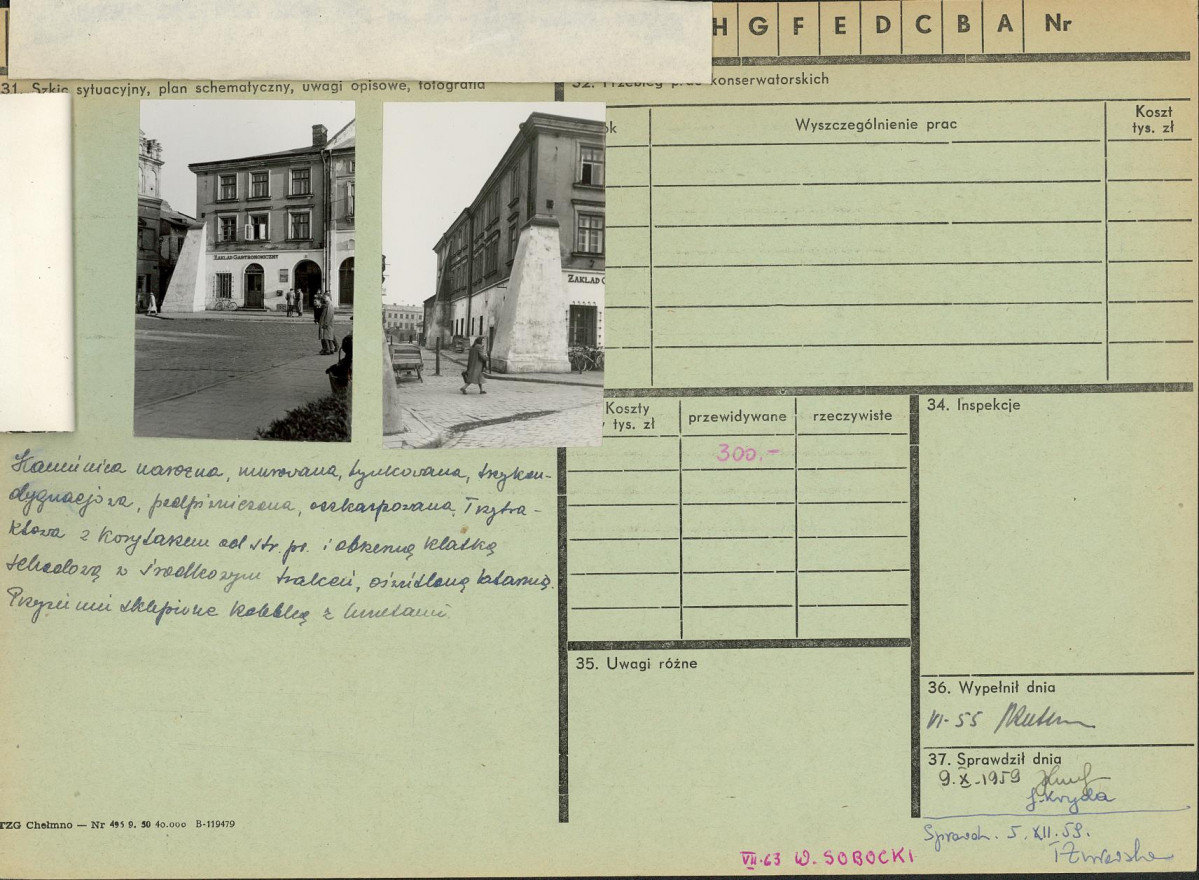 H G F E D C B A Nr
31. Szkic sytuacyjny, plan schematyczny, uwagi opisowe, fotografia
32. Przebieg prac konserwatorskich
ok Wyszczególnienie prac Koszt
tys. zł
ZAKŁAD GASTRONOMICZNY
ZAKŁAD G
Kamienica narożna, murowana, tynkowana, trzykon-
dygnacjowa, podpiwniczona, oszkarpowana. Trzytra-
ktowa z korytarzem od str. pr. i obszerną klatką
schodową w środkowym trakcie, oświetloną latarnią.
Przyziemie sklepione kolebką z lunetami.
Koszty
tys. zł przewidywane rzeczywiste
300.-
34. Inspekcje
35. Uwagi różne
36. Wypełnił dnia
VI-55
37. Sprawdził dnia
9.X.1959
J. Kryda
Sprawdz. 5.XII.59.
TZG Chełmno — Nr 495 9. 50 40.000 B-119479
VII.63 W. SOBOCKI